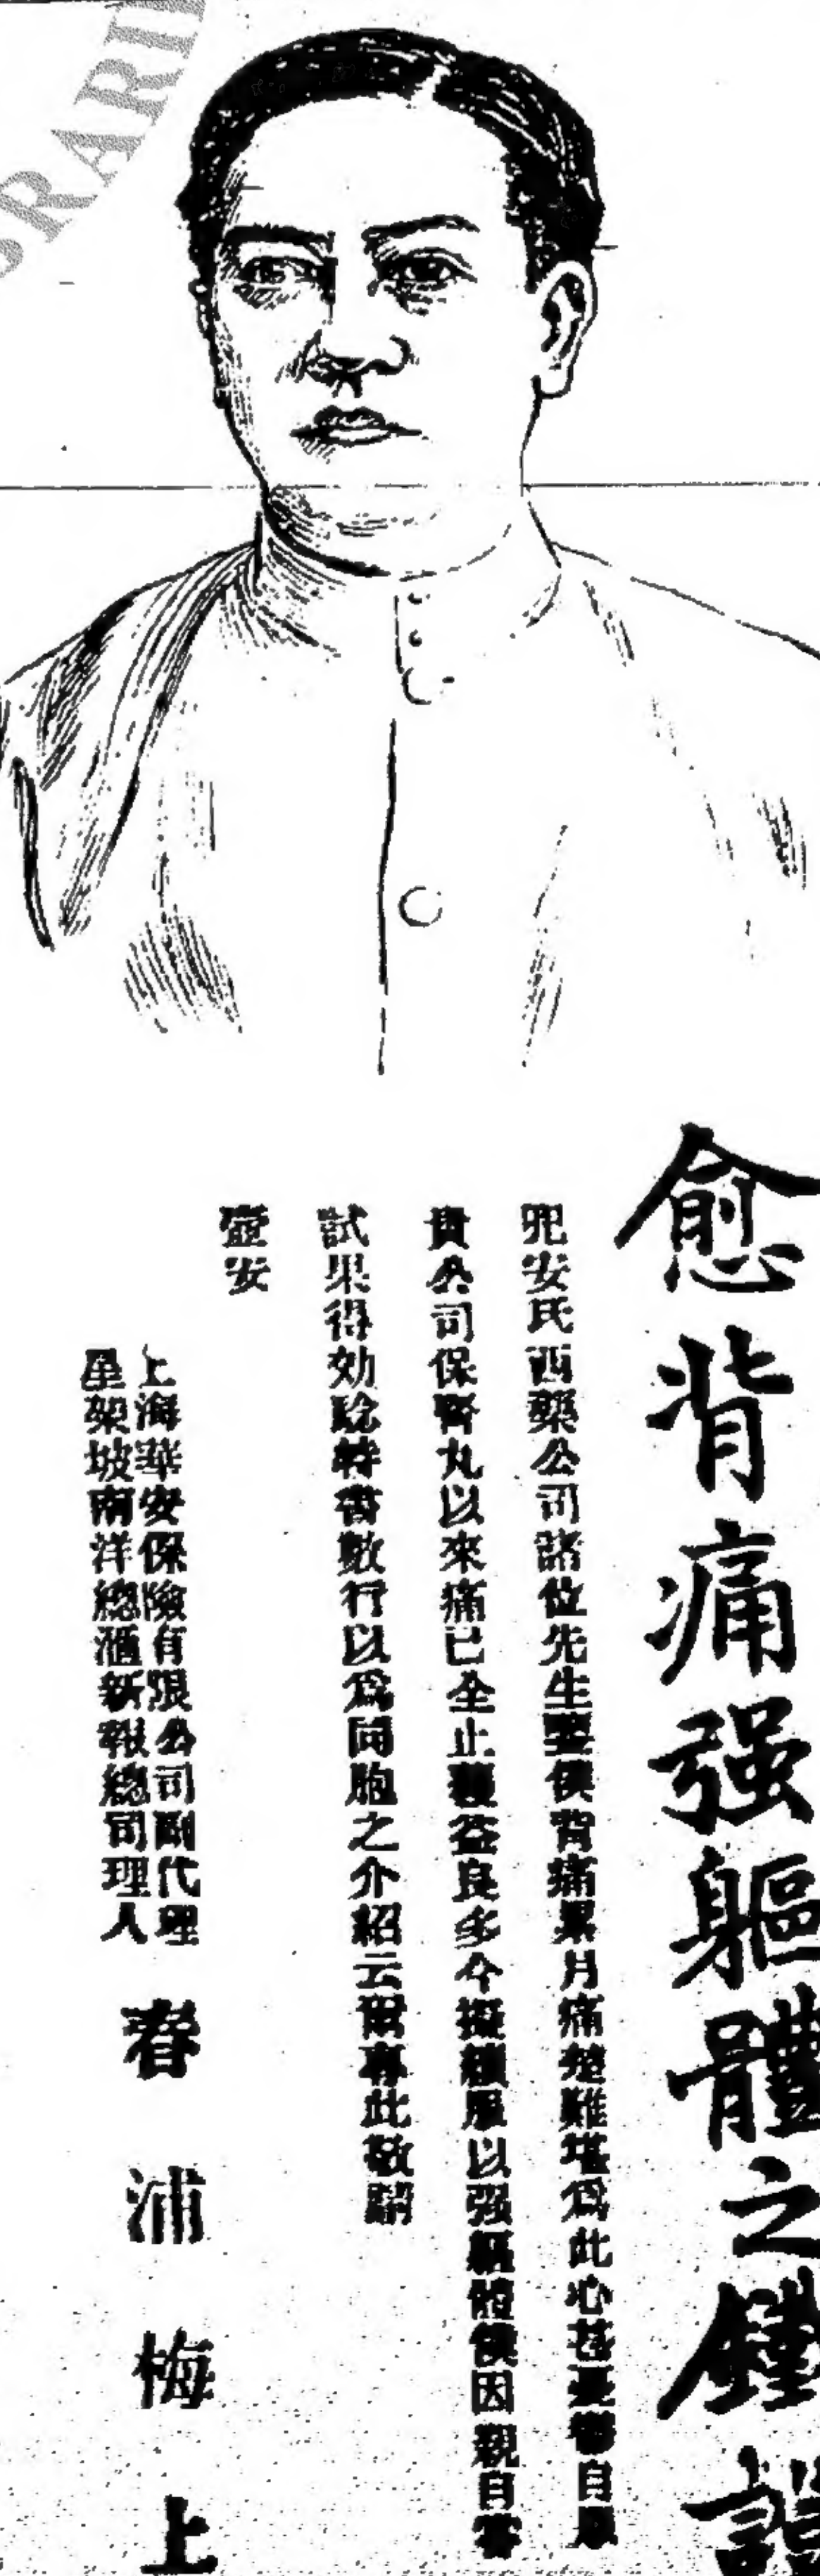 愈背痛强軀體之鐵證
兜安氏西藥公司諸位先生鑒僕背痛累月痛楚難堪爲此心甚憂鬱自服
貴公司保腎丸以來痛已全止獲益良多今擬續服以强軀體僕因親自嘗
試果得効騐特書數行以爲同胞之介紹云爾專此敬請
壼安
上海華安保險有限公司副代理
星架坡南洋總滙新報總司理人
春浦梅上
BRARI